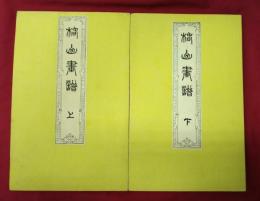 椿山畫譜
上
椿山畫譜
下